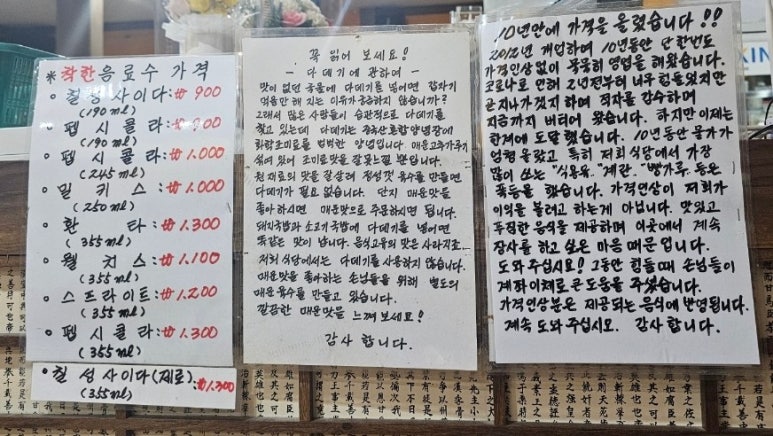 *착한 음료수 가격
• 칠성사이다:₩900
(190 ml)
• 펩시콜라:₩900
(190 ml)
• 펩시콜라:₩1.000
(245 ml)
• 밀키스:₩1.000
(250 ml)
• 환타:₩1.300
(355 ml)
• 웰치스:₩1.100
(355 ml)
• 스프라이트:₩1.200
(355 ml)
• 펩시콜라:₩1.300
(355 ml)
• 칠성사이다(제로):₩1.300
(355 ml)
꼭 읽어 보세요!
- 다데기에 관하여 -
맛이 없던 국물에 다데기를 넣으면 갑자기
먹을만 해 지는 이유가 궁금하지 않습니까?
그래서 많은 사람들이 습관적으로 다데기를
찾고 있는데 다데기는 중국산 혼합양념장에
화학조미료를 범벅한 양념입니다. 매운고추가루가
섞여 있어 조미료맛을 잘 못느낄 뿐입니다.
천연재료의 맛을 잘살려 정성껏 육수를 만들면
다데기가 필요 없습니다. 단지 매운맛을
좋아하시면 매운맛으로 주문하시면 됩니다.
돼지국밥과 소고기국밥에 다데기를 넣으면
똑같은 맛이 납니다. 음식고유의 맛은 사라지죠.
저희 식당에서는 다데기를 사용하지 않습니다.
매운맛을 좋아하는 손님들을 위해 별도의
매운육수를 만들고 있습니다.
깔끔한 매운맛을 느껴 보세요!
감사 합니다.
10년만에 가격을 올렸습니다!!
2012년 개업하여 10년동안 단 한번도
가격인상없이 묵묵히 영업을 해왔습니다.
코로나로 인해 2년전부터 너무 힘들었지만
곧지나가겠지하며 적자를 감수하며
지금까지 버티어 왔습니다. 하지만 이제는
한계에 도달했습니다. 10년동안 물가가
엄청 올랐고 특히 저희 식당에서 가장
많이 쓰는 "식용유" "계란" "빵가루" 등은
폭등을 했습니다. 가격인상이 저희가
이익을 볼려고 하는게 아닙니다. 맛있고
푸짐한 음식을 제공하며 이곳에서 계속
장사를 하고 싶은 마음 때문입니다.
도와 주십시요! 그동안 힘들때 손님들이
계좌이체로 큰 도움을 주셨습니다.
가격인상분은 제공되는 음식에 반영됩니다.
계속 도와 주십시요. 감사 합니다.